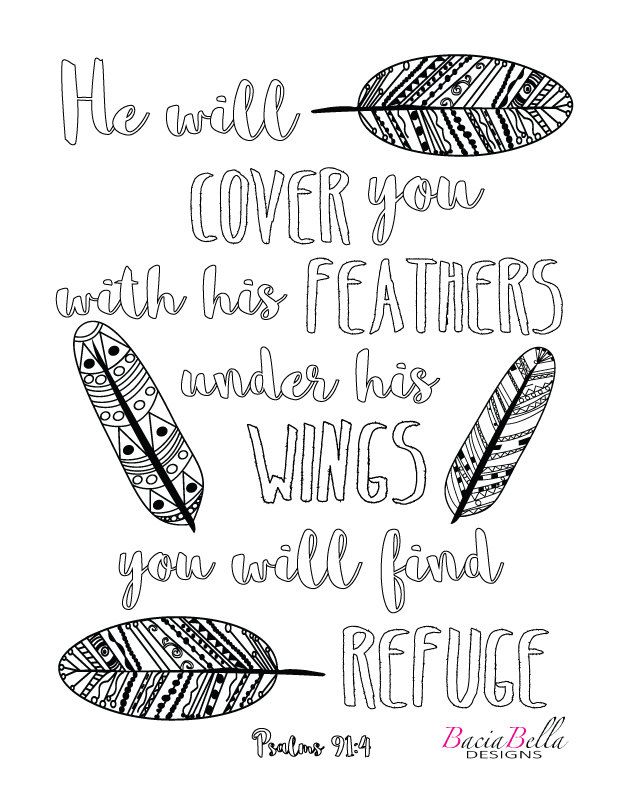 He will
COVER you
with his FEATHERS
under his
WINGS
you will find
REFUGE
Psalms 91:4
BaciaBella
DESIGNS